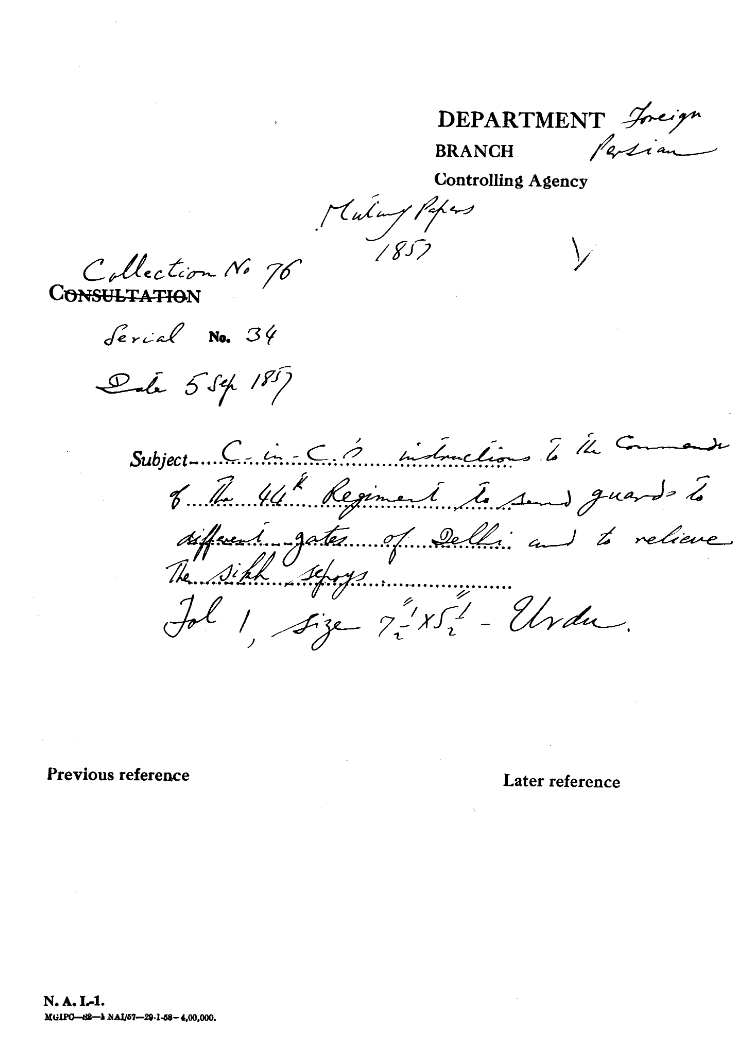 DEPARTMENT Foreign
BRANCH Persian
Controlling Agency
Mutiny Papers
1857
Collection No 76
CONSULTATION
Serial No. 34
Date 5 Sep 1857
Subject C-in-C's instructions to the Commander
of the 44th Regiment to send guards to
different gates of Delhi and to relieve
the Sikh sepoys.
Fol 1, size 7½" x 5½" - Urdu.
Previous reference
Later reference
N. A. I.-1.
MGIPC—82—1 NAI/57—29-1-58—4,00,000.